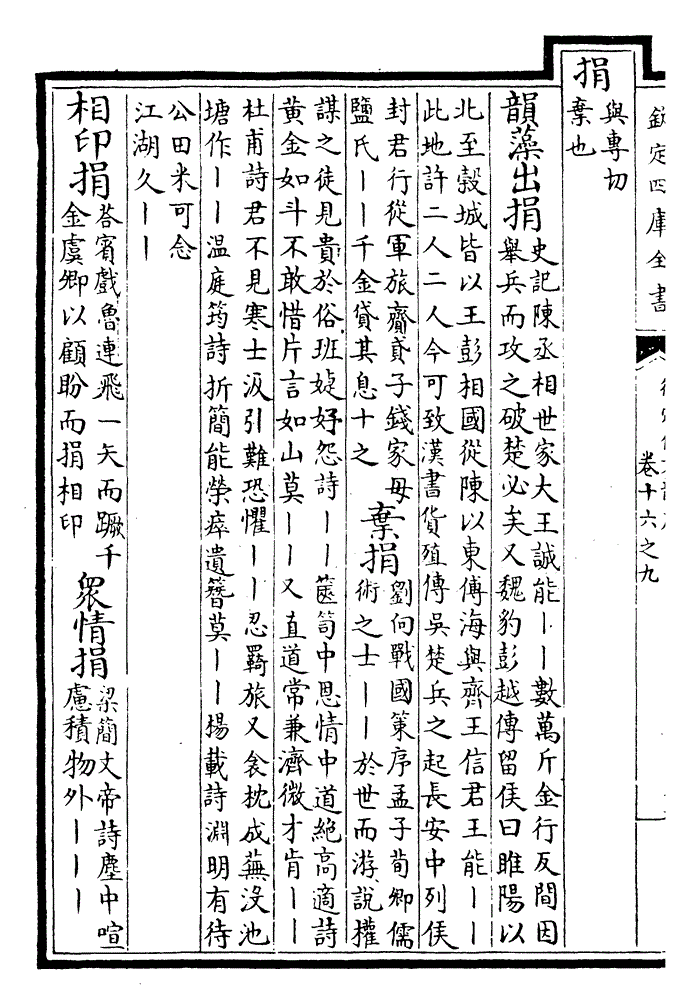 欽定四庫全書
卷十六之九
捐
與專切
棄也
韻藻出捐
史記陳丞相世家大王誠能丨丨數萬斤金行反間因
舉兵而攻之破楚必矣又魏豹彭越傳留侯曰睢陽以
北至穀城皆以王彭相國從陳以東傳海與齊王信君王能丨丨
此地許二人二人今可致漢書貨殖傳吳楚兵之起長安中列侯
封君行從軍旅齎貣子錢家毋
鹽氏丨丨千金貸其息十之
棄捐
劉向戰國策序孟子荀卿儒
術之士丨丨於世而游說權
謀之徒見貴於俗班婕妤怨詩丨丨篋笥中恩情中道絕高適詩
黃金如斗不敢惜片言如山莫丨丨又直道常兼濟微才肯丨丨
杜甫詩君不見寒士汲引難恐懼丨丨忍羇旅又衾枕成蕪沒池
塘作丨丨温庭筠詩折簡能榮瘁遺簪莫丨丨楊載詩淵明有待
公田米可念
江湖久丨丨
相印捐
荅賓戲魯連飛一矢而蹶千
金虞卿以顧盼而捐相印
衆情捐
梁簡文帝詩塵中喧
慮積物外丨丨丨